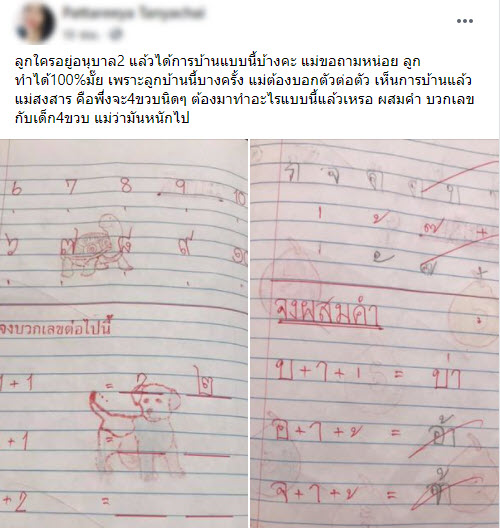 Pattareeya Tanyachai
ลูกใครอยู่อนุบาล2 แล้วได้การบ้านแบบนี้บ้างคะ แม่ขอถามหน่อย ลูก
ทำได้100%มั้ย เพราะลูกบ้านนี้บางครั้ง แม่ต้องบอกตัวต่อตัว เห็นการบ้านแล้ว
แม่สงสาร คือพึ่งจะ4ขวบนิดๆ ต้องมาทำอะไรแบบนี้แล้วเหรอ ผสมคำ บวกเลข
กับเด็ก4ขวบ แม่ว่ามันหนักไป
๖ 7 8 9 10
๖ ๗ ๘ ๙ ๑๐
จงบวกเลขต่อไปนี้
1 + 1 = 2 ๒
+ 1 =
+ 2 =
จงผสมคำ
บ + า + ่ = บ่า
อ + า + ้ = อ้า
จ + า + ้ = จ้า